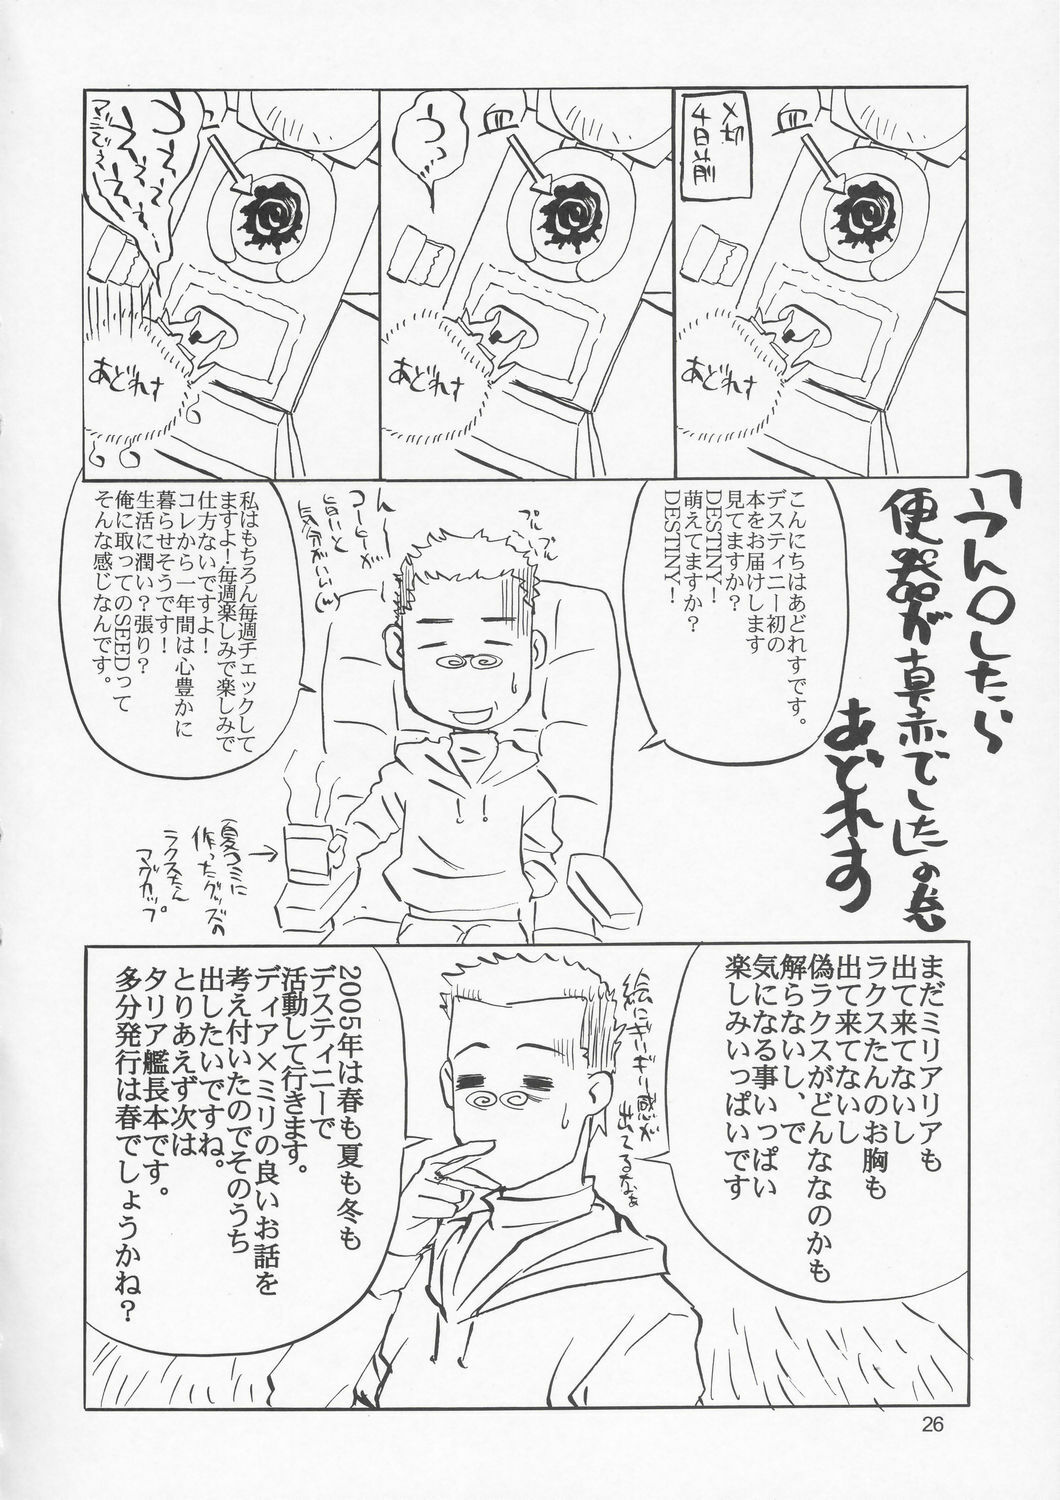 「うん○したら
便器が真赤でした」の巻
あどれす
〆切
4日前
血
あどれす
血
うっ…
あどれす
血
マジでぇ…
あどれす
こんにちはあどれすです。
デスティニー初の
本をお届けします
見てますか?
DESTINY!
萌えてますか?
DESTINY!
プルプル
プルプル
コーヒーが
旨いと
気分がいい
私はもちろん毎週チェックして
ますよ!毎週楽しみで楽しみで
仕方ないですよ!
コレから一年間は心豊かに
暮らせそうです!
生活に潤い?張り?
俺に取ってのSEEDって
そんな感じなんです。
夏コミに
作ったグッズの
ラクスたん
マグカップ。
まだミリアリアも
出て来てないし
ラクスたんのお胸も
出て来てないし
偽ラクスがどんななのかも
解らないし、で
気になる事いっぱい
楽しみいっぱいです
絵にギーギー感が
出てるなぁ
2005年は春も夏も冬も
デスティニーで
活動して行きます。
ディア×ミリの良いお話を
考え付いたのでそのうち
出したいですね。
とりあえず次は
タリア艦長本です。
多分発行は春でしょうかね?
26